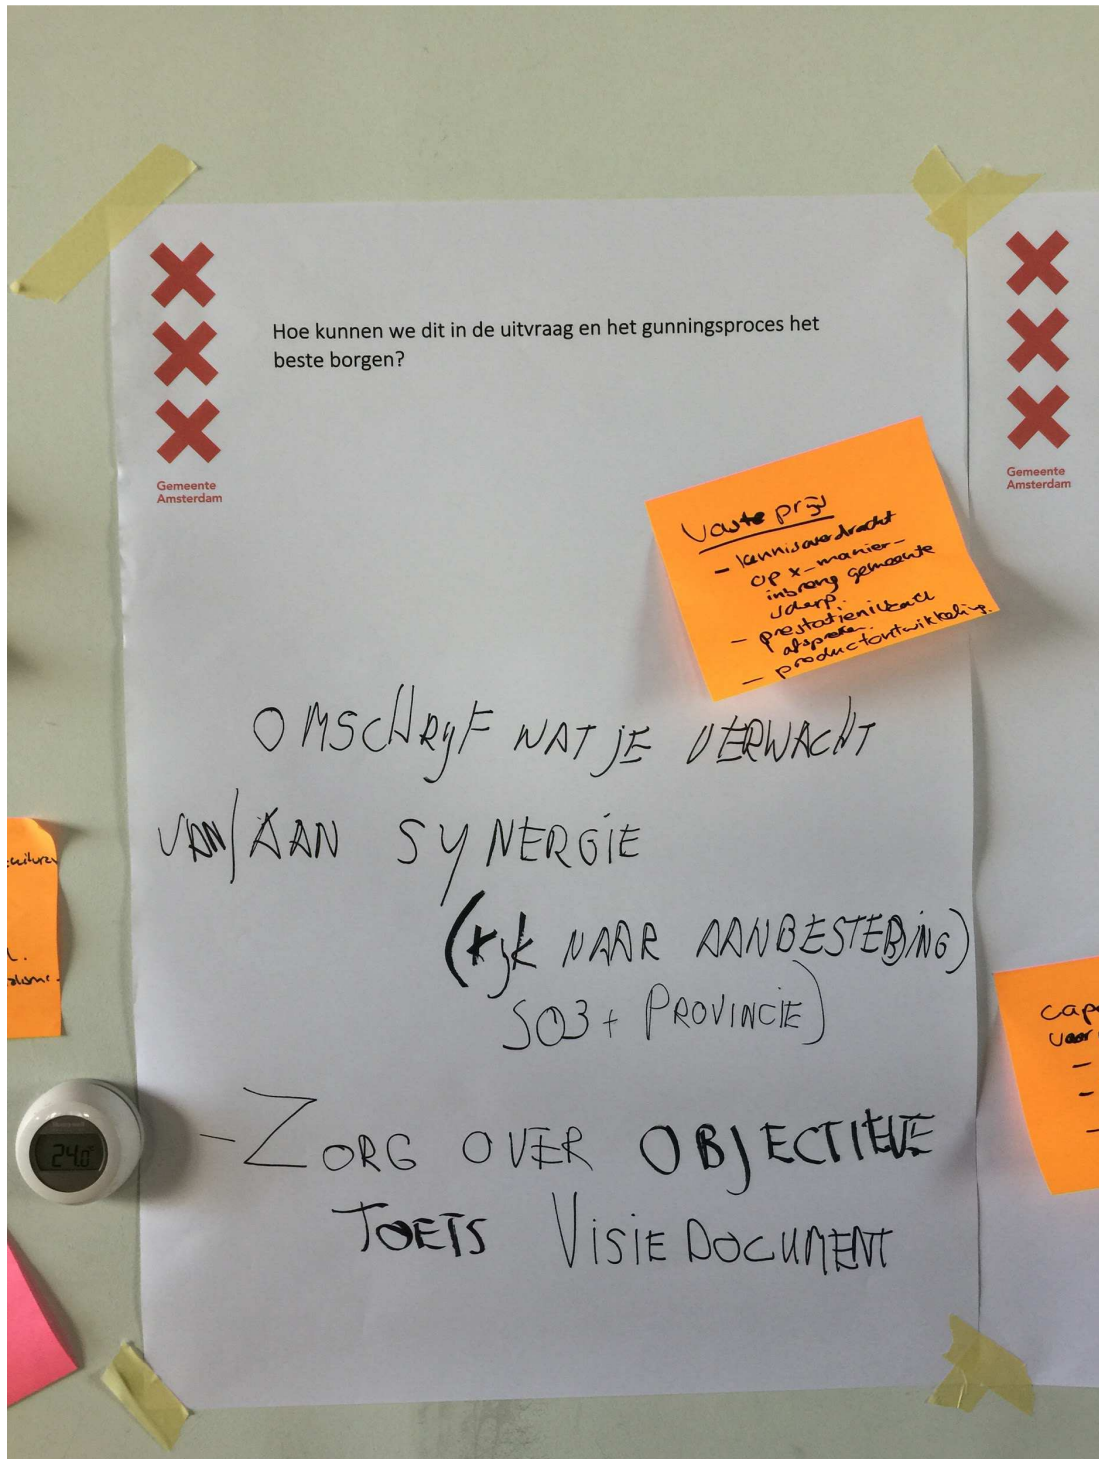 Hoe kunnen we dit in de uitvraag en het gunningsproces het
beste borgen?
Gemeente
Amsterdam
Vaste prijs
- kennisoverdracht
op x-manier-
inbreng gemeente
- prestatieniveau
afspreken.
- productontwikkeling.
OMSCHRIJF WAT JE VERWACHT
VAN/AAN SYNERGIE
(KIJK NAAR AANBESTEDING)
SO3 + PROVINCIE)
- ZORG OVER OBJECTIEVE
TOETS VISIE DOCUMENT
Gemeente
Amsterdam
Honeywell
24.0°